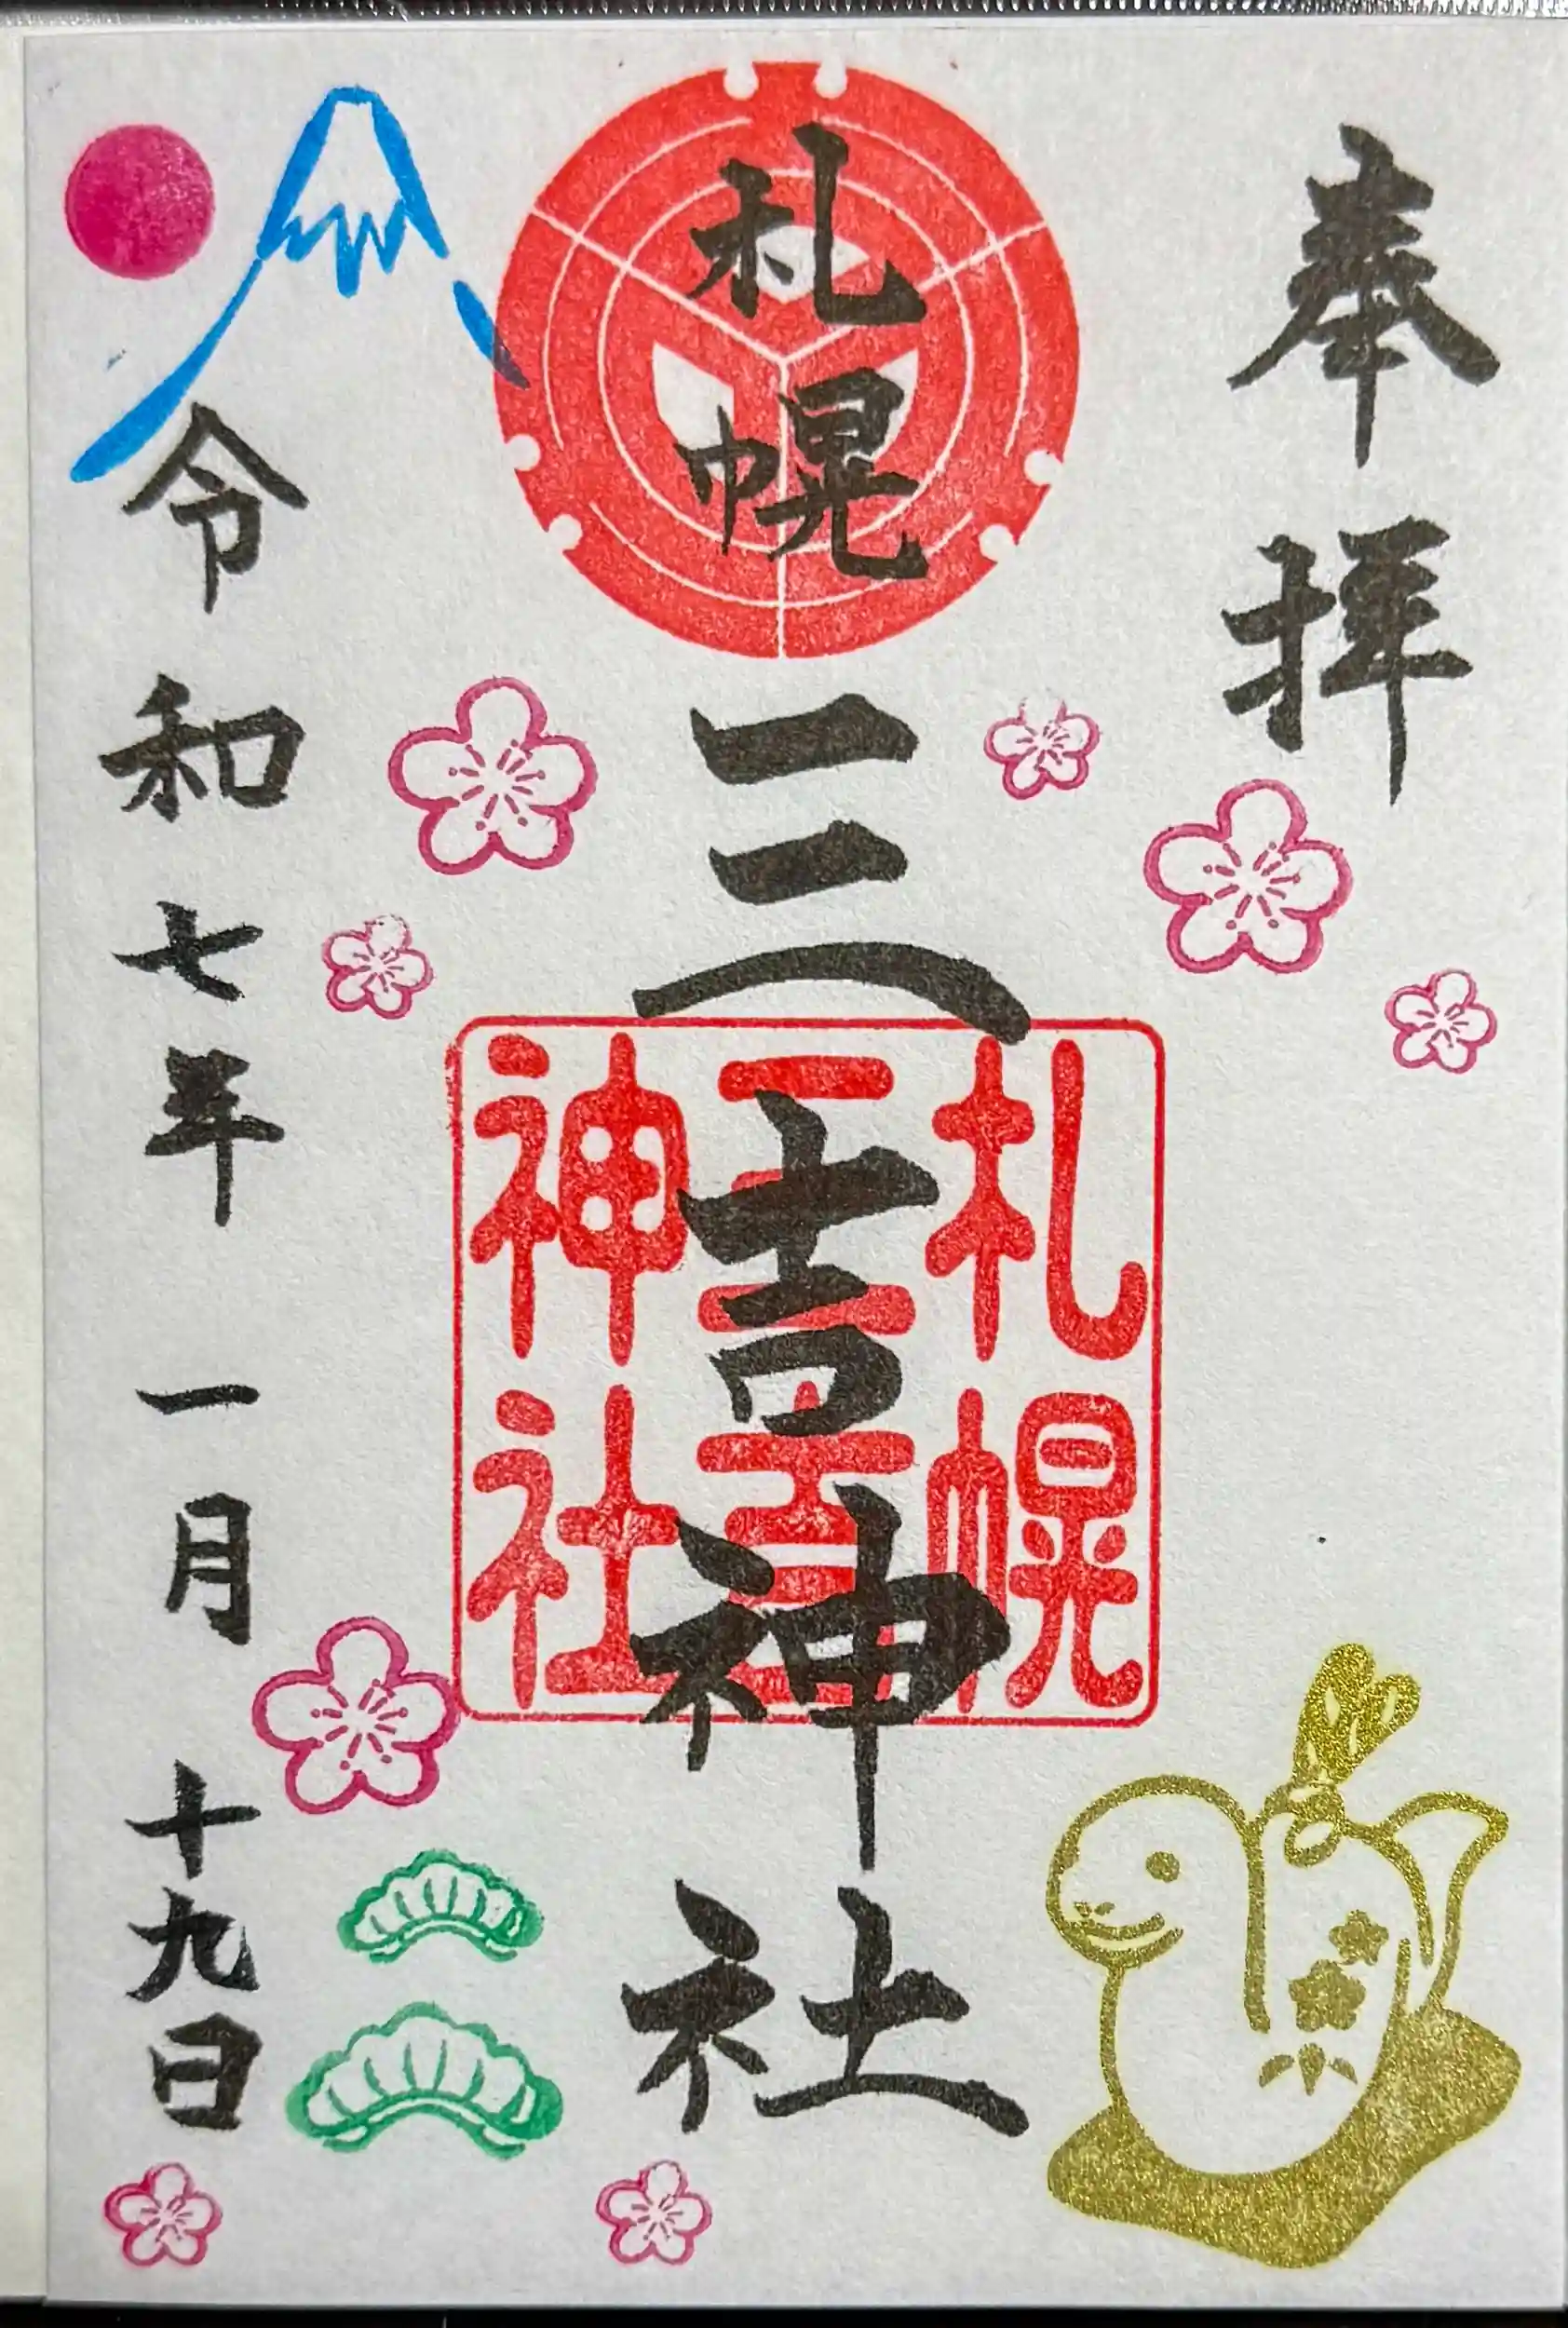 奉拝
札幌三吉神社
札幌
三吉
神社
令和七年一月十九日